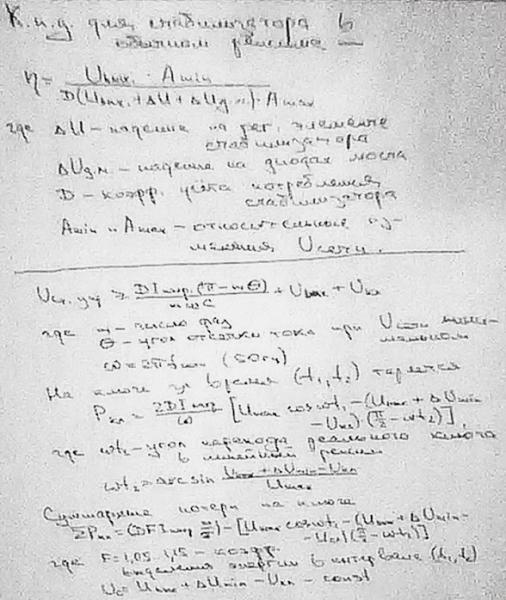 К.п.д. для стабилизатора в
обычном режиме —
η = Uвых. · Amin
D(Uвых. + ΔU + ΔUд.м.) · Amax
где ΔU - падение на рег. элементе
стабилизатора
ΔUд.м. - падение на диодах моста
D - коэфф. учёта потребления
стабилизатора
Amin и Amax - относительные из-
менения Uсети.
+ Uвых + Uкл
где m - число фаз
Θ - угол отсечки тока при Uсети мини-
мальном
ω = 2πf (50 гц)
На ключе за время (t₁, t₂) теряется
Pкл = [Uмах cos ωt₁ - (Uвых + ΔUmin
- Uкл)(π/2 - ωt₂)],
где ωt₂ - угол перехода реального ключа
в линейный режим
ωt₂ = arc sin Uвых + ΔUmin - Uкл
Uмах
Суммарные потери на ключе
- [Uмах cos ωt₁ - (Uвых + ΔUmin -
где F = 1,05 - 1,15 - коэфф.
выделения энергии в интервале (t₁, t₂)
Uвых + ΔUmin - Uкл - const